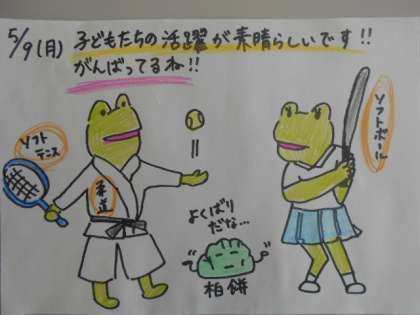 5/9(月) 子どもたちの活躍が素晴らしいです!!
がんばってるね!!
ソフト
テニス
柔道
ソフトボール
よくばり
だな…
柏餅